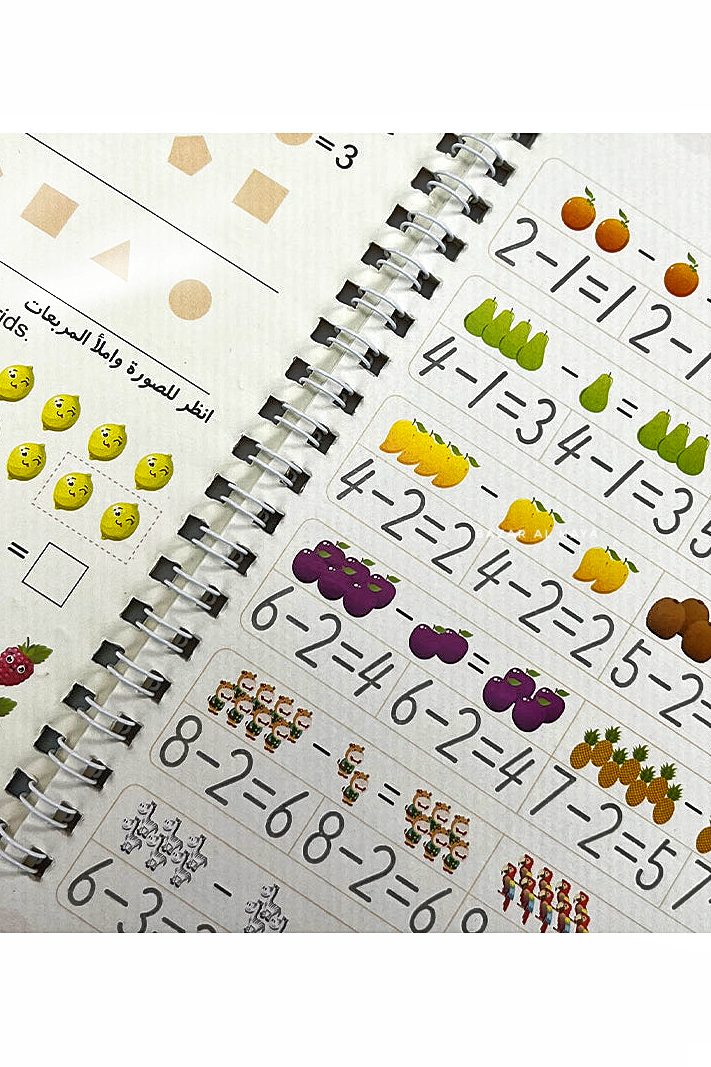 =3
انظر للصورة واملأ المربعات
ids.
=
2-1=1 2-1
4-1=3 4-1=3 5
4-2=2 4-2=2 5-2=
6-2=4 6-2=4 7-2=5 7
8-2=6 8-2=6 9
6-3=